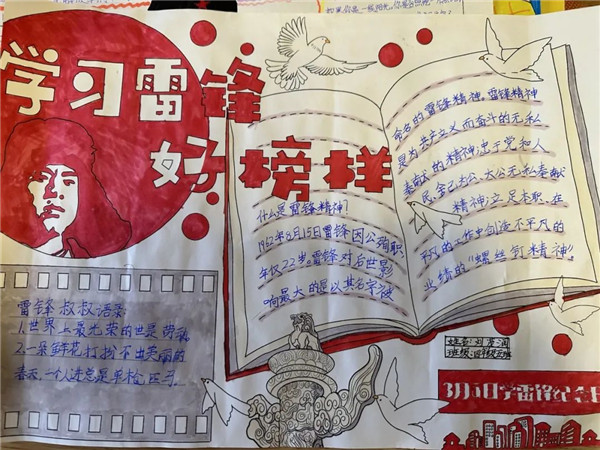 学习雷锋
好榜样
什么是雷锋精神?
1962年8月15日雷锋因公殉职
年仅22岁。雷锋对后世影
响最大的是以其名字被
命名的雷锋精神,雷锋精神
是为共产主义而奋斗的无私
奉献的精神忠于党和人
民、舍己为公、大公无私奉献
精神立足本职、在
平凡的工作中创造不平凡的
业绩的“螺丝钉精神”。
雷锋叔叔语录:
1.世界上最光荣的世是劳动
2.一朵鲜花打扮不出美丽的
春天,一个人进总是单枪匹马
姓名:
班级:
3月5日学雷锋纪念日